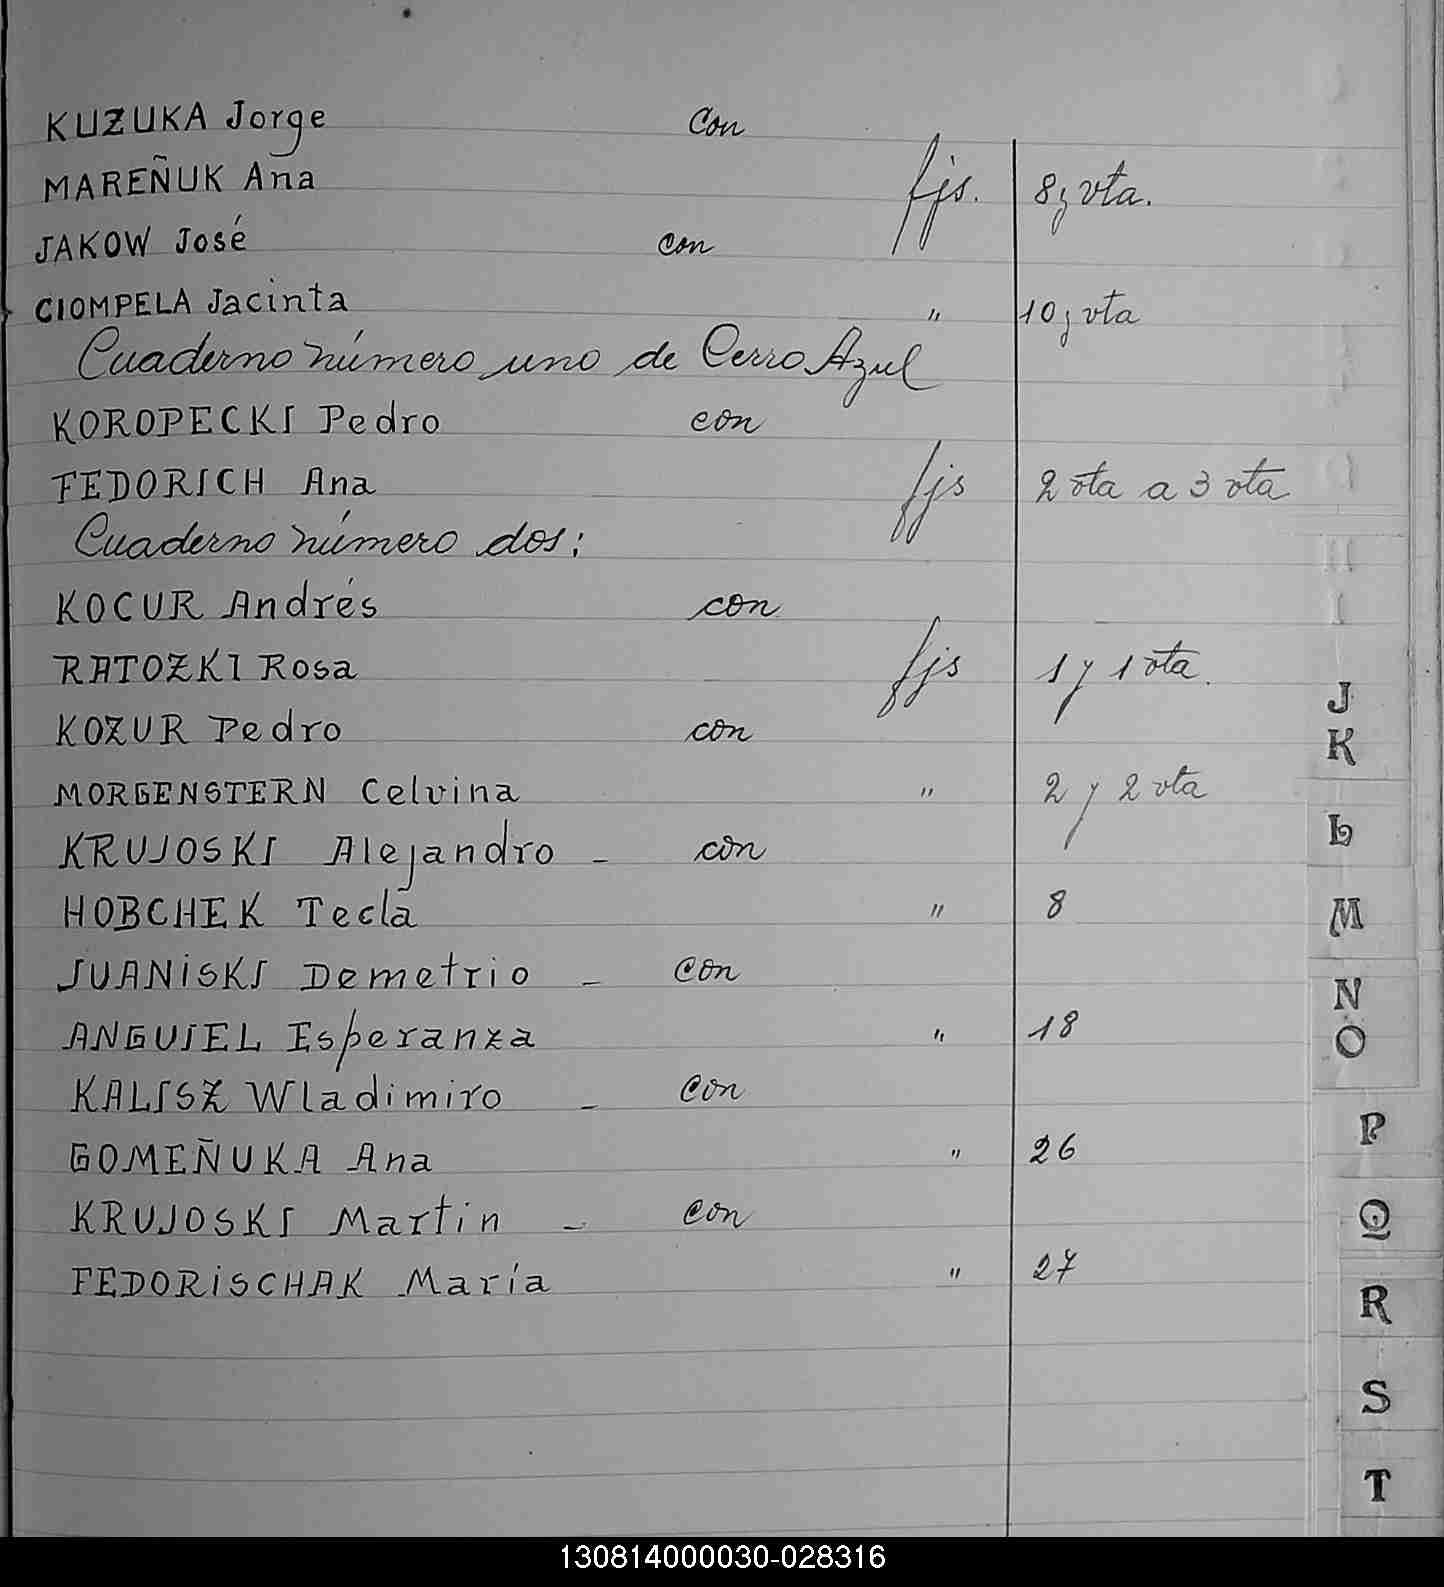 KUZUKA Jorge con
MAREÑUK Ana fjs. 8 y vta.
JAKOW José con
CIOMPELA Jacinta " 10 y vta
Cuaderno número uno de Cerro Azul
KOROPECKI Pedro con
FEDORICH Ana fjs 2 vta a 3 vta
Cuaderno número dos:
KOCUR Andrés con
RATOZKI Rosa fjs 1 y 1 vta.
KOZUR Pedro con
MORGENSTERN Celvina " 2 y 2 vta
KRUJOSKI Alejandro - con
HOBCHEK Tecla " 8
JUANISKI Demetrio - con
ANGUIEL Esperanza " 18
KALISZ Wladimiro - con
GOMEÑUKA Ana " 26
KRUJOSKI Martin - con
FEDORISCHAK María " 27
J
K
L
M
N
O
P
Q
R
S
T
130814000030-028316